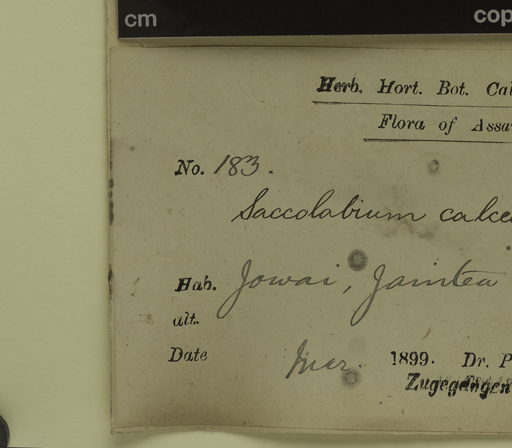 cm cop
Herb. Hort. Bot. Cal
Flora of Assa
No. 183.
Saccolabium calce
Hab. Jowai, Jaintea
alt.
Date Mar. 1899. Dr. P
Zugegangen